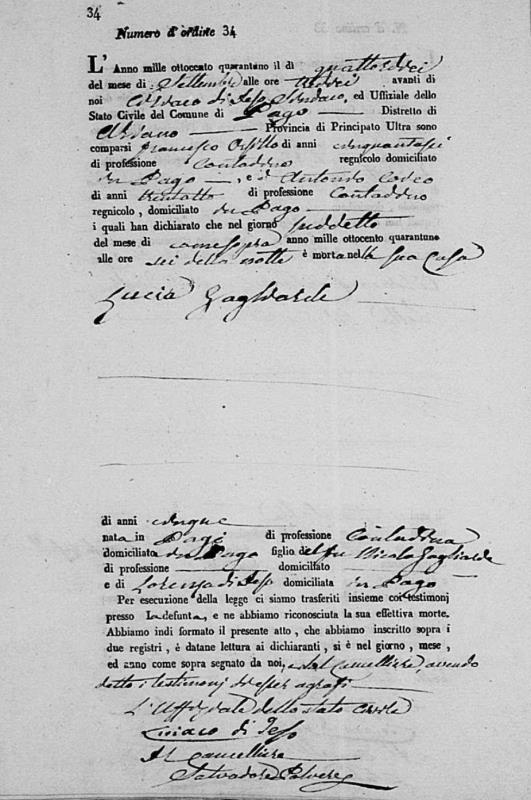 34
Numero d'ordine 34
L'Anno mille ottocento quarantuno il di quattordici
del mese di Settembre alle ore tredici avanti di
noi Ciriaco di Jeso Sindaco, ed Uffiziale dello
Stato Civile del Comune di Pago Distretto di
Ariano Provincia di Principato Ultra sono
comparsi Francesco di anni cinquantasei
di professione Contadino regnicolo domiciliato
in Pago, e d' Antonio
di anni trentotto di professione Contadino
regnicolo, domiciliato in Pago
i quali han dichiarato che nel giorno suddetto
del mese di come sopra anno mille ottocento quarantuno
alle ore sei della notte è morta nella sua Casa
Lucia Gagliarde
di anni cinque
nata in Pago di professione Contadina
domiciliata in Pago figlio del fu Nicola Gagliarde
di professione domiciliato
e di Lorenza di Jeso domiciliata in Pago
Per esecuzione della legge ci siamo trasferiti insieme coi testimonj
presso La defunta, e ne abbiamo riconosciuta la sua effettiva morte.
Abbiamo indi formato il presente atto, che abbiamo inscritto sopra i
due registri, è datane lettura ai dichiaranti, si è nel giorno, mese,
ed anno come sopra segnato da noi, e dal Cancelliere, avendo
detto i testimonj
L'Uffiziale dello stato civile
Ciriaco di Jeso
Il Cancelliere
Salvadore Polvere